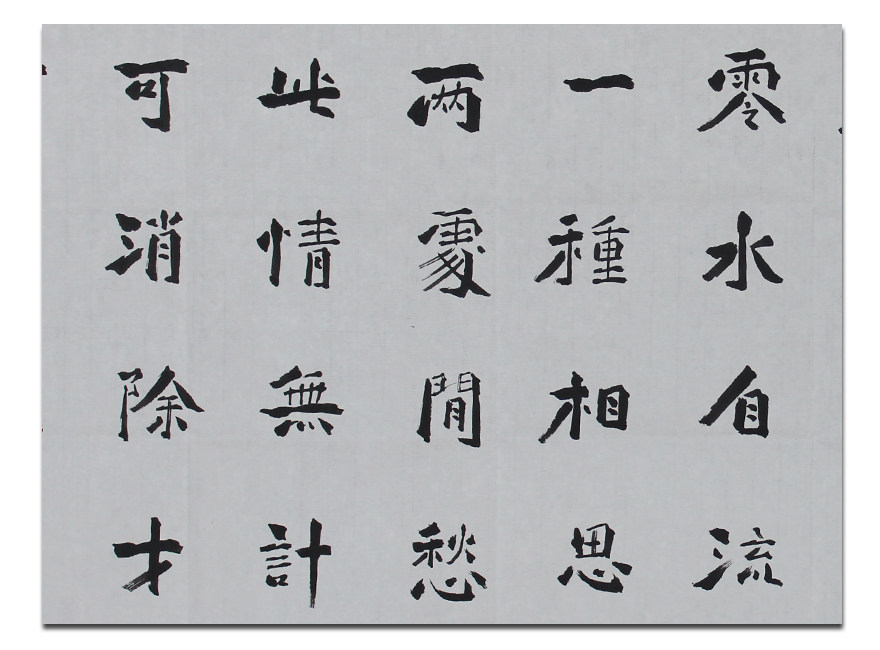 零水自流
一種相思
两處閒愁
此情無計
可消除才